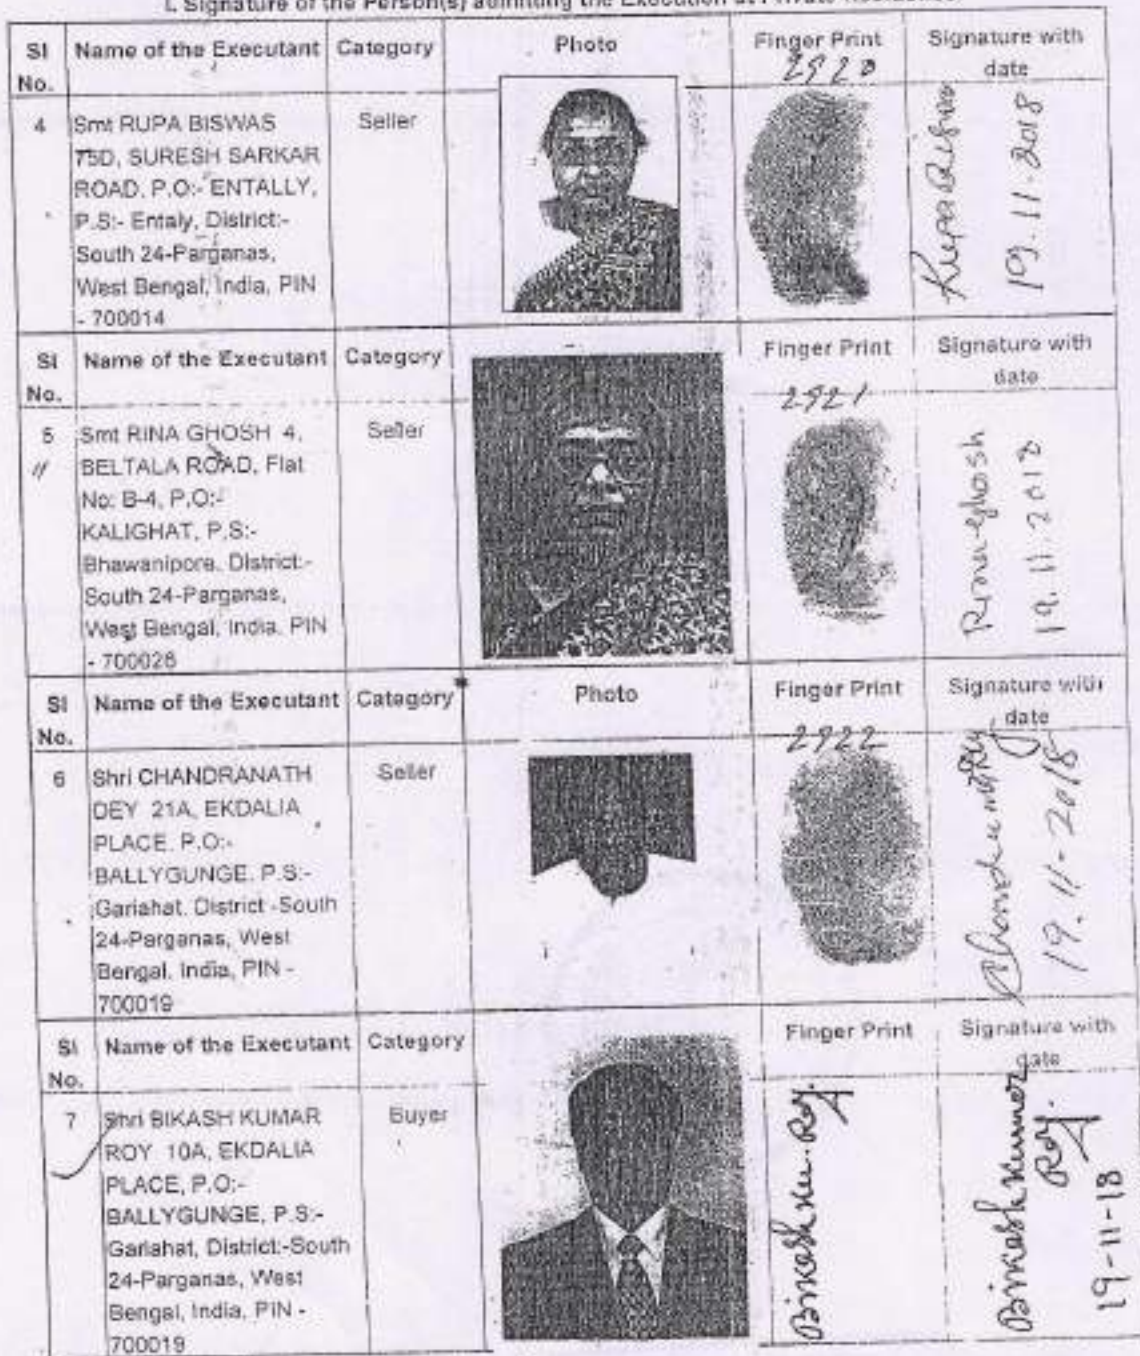 I. Signature of the Person(s) admitting the Execution at Private Residence.
Sl No. Name of the Executant Category Photo Finger Print Signature with date
2920
4 Smt RUPA BISWAS Seller
75D, SURESH SARKAR
ROAD, P.O:- ENTALLY,
P.S:- Entaly, District:-
South 24-Parganas,
West Bengal, India, PIN
- 700014
Rupa Biswas
19.11.2018
Sl No. Name of the Executant Category Finger Print Signature with date
2921
5 Smt RINA GHOSH 4, Seller
BELTALA ROAD, Flat
No: B-4, P.O:-
KALIGHAT, P.S:-
Bhawanipore, District:-
South 24-Parganas,
West Bengal, India, PIN
- 700026
Rina Ghosh
19.11.2018
Sl No. Name of the Executant Category Photo Finger Print Signature with date
2922
6 Shri CHANDRANATH Seller
DEY 21A, EKDALIA
PLACE, P.O:-
BALLYGUNGE, P.S:-
Gariahat, District:-South
24-Parganas, West
Bengal, India, PIN -
700019
19.11-2018
Sl No. Name of the Executant Category Finger Print Signature with date
7 Shri BIKASH KUMAR Buyer
ROY 10A, EKDALIA
PLACE, P.O:-
BALLYGUNGE, P.S:-
Gariahat, District:-South
24-Parganas, West
Bengal, India, PIN -
700019
Bikash Ku. Roy
Bikash Kumar
Roy
19-11-18